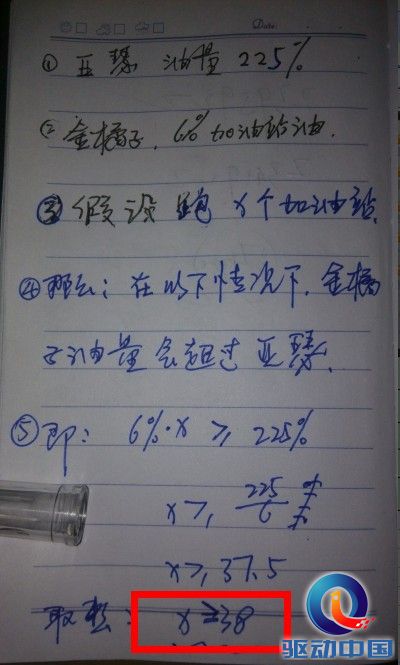 Date:
① 亚瑟 油量 225%
② 金橘子, 6%加油站油.
③ 假设 跑 x个加油站.
④ 那么: 在以下情况下, 金橘
子油量会超过 亚瑟.
⑤ 即: 6%·x ≥ 225%
x ≥ 225/6
x ≥ 37.5
取整: x ≥ 38
驱动中国